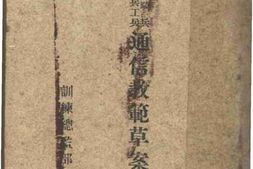 兵工兵
通信教範草案
訓練總監部